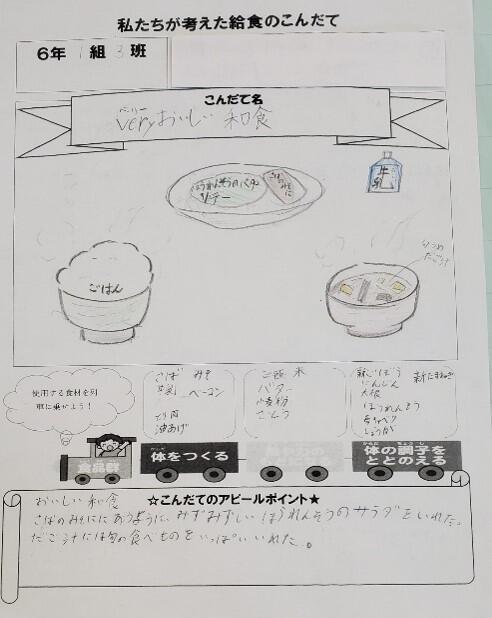 私たちが考えた給食のこんだて
6年 1組 3班
こんだて名
ベリー
veryおいしい 和食
ほうれんそうのバター
ソテー
さばのみそに
牛乳
ごはん
だご汁
使用する食材を列
車に乗せよう！
さば みそ
牛乳 ベーコン
とり肉
油あげ
ご飯 米
バター
小麦粉
さとう
新ごぼう 新たまねぎ
にんじん
大根
ほうれんそう
キャベツ
しょうが
食品群
体をつくる
体の調子を
ととのえる
☆こんだてのアピールポイント★
おいしい和食
さばのみそににあうように、みずみずしいほうれんそうのサラダをいれた。
だご汁には旬の食べものをいっぱいいれた。